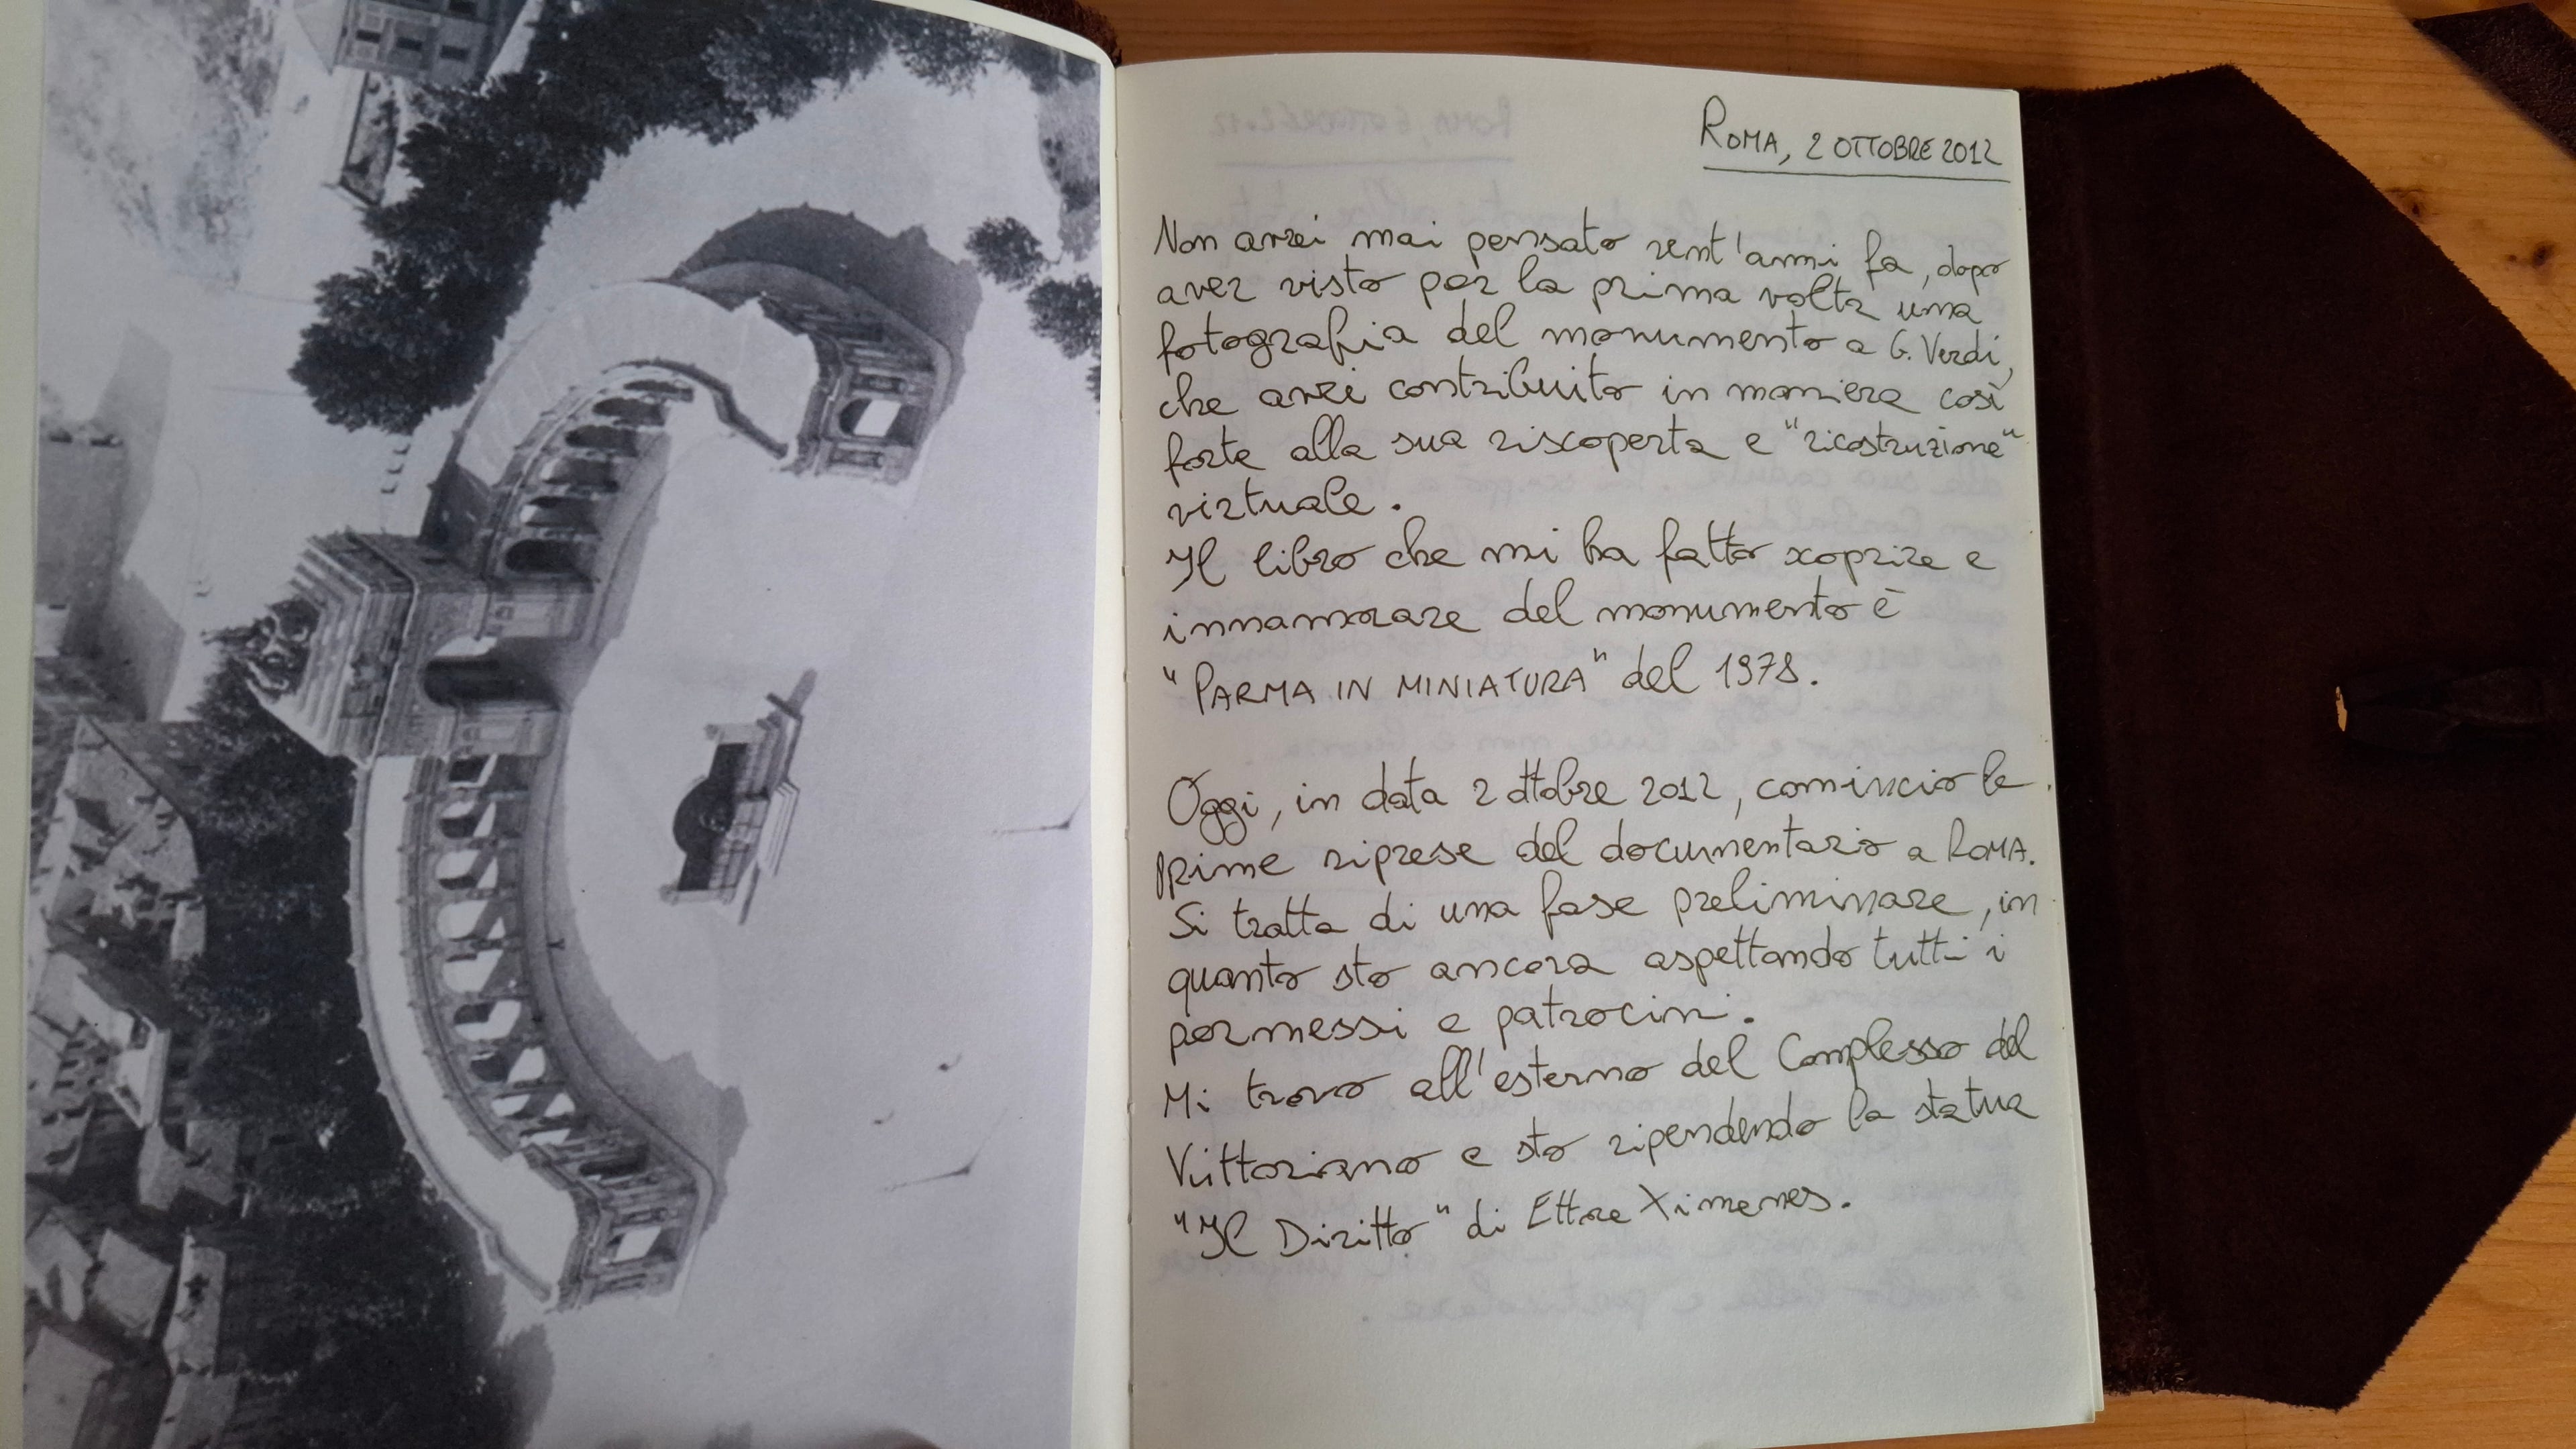 ROMA, 2 OTTOBRE 2012
Non avrei mai pensato vent'anni fa, dopo
aver visto per la prima volta una
fotografia del monumento a G. Verdi,
che avrei contribuito in maniera così
forte alla sua riscoperta e "ricostruzione"
virtuale.
Il libro che mi ha fatto scoprire e
innamorare del monumento è
"PARMA IN MINIATURA" del 1978.
Oggi, in data 2 ottobre 2012, comincio le
prime riprese del documentario a ROMA.
Si tratta di una fase preliminare, in
quanto sto ancora aspettando tutti i
permessi e patrocini.
Mi trovo all'esterno del Complesso del
Vittoriano e sto ripendendo la statua
"Il Diritto" di Ettore Ximenes.